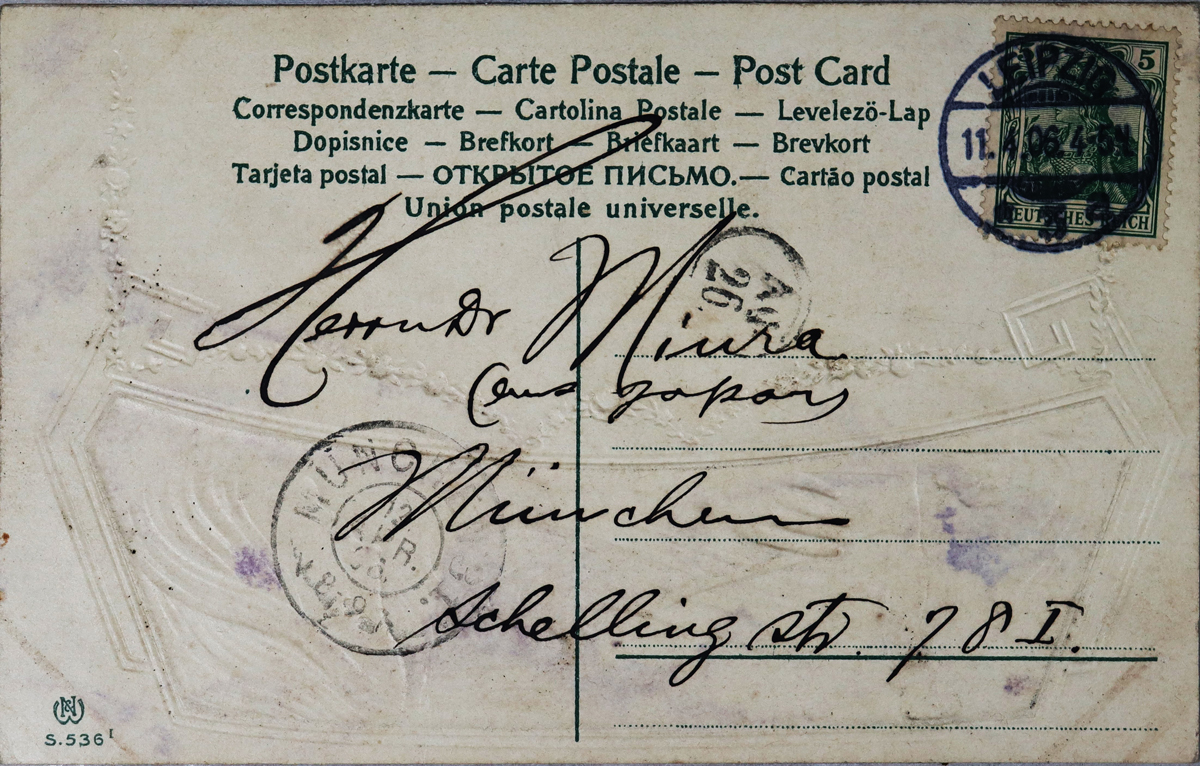 Postkarte — Carte Postale — Post Card
Correspondenzkarte — Cartolina Postale — Levelező-Lap
Dopisnice — Brefkort — Briefkaart — Brevkort
Tarjeta postal — ОТКРЫТОЕ ПИСЬМО. — Cartão postal
Union postale universelle.
5
LEIPZIG
11.4.06.4-5N
DEUTSCHES REICH
26
Herrn Dr Miura
aus Japan
München
Schellingstr. 78 I.
MÜNC
S.536 I